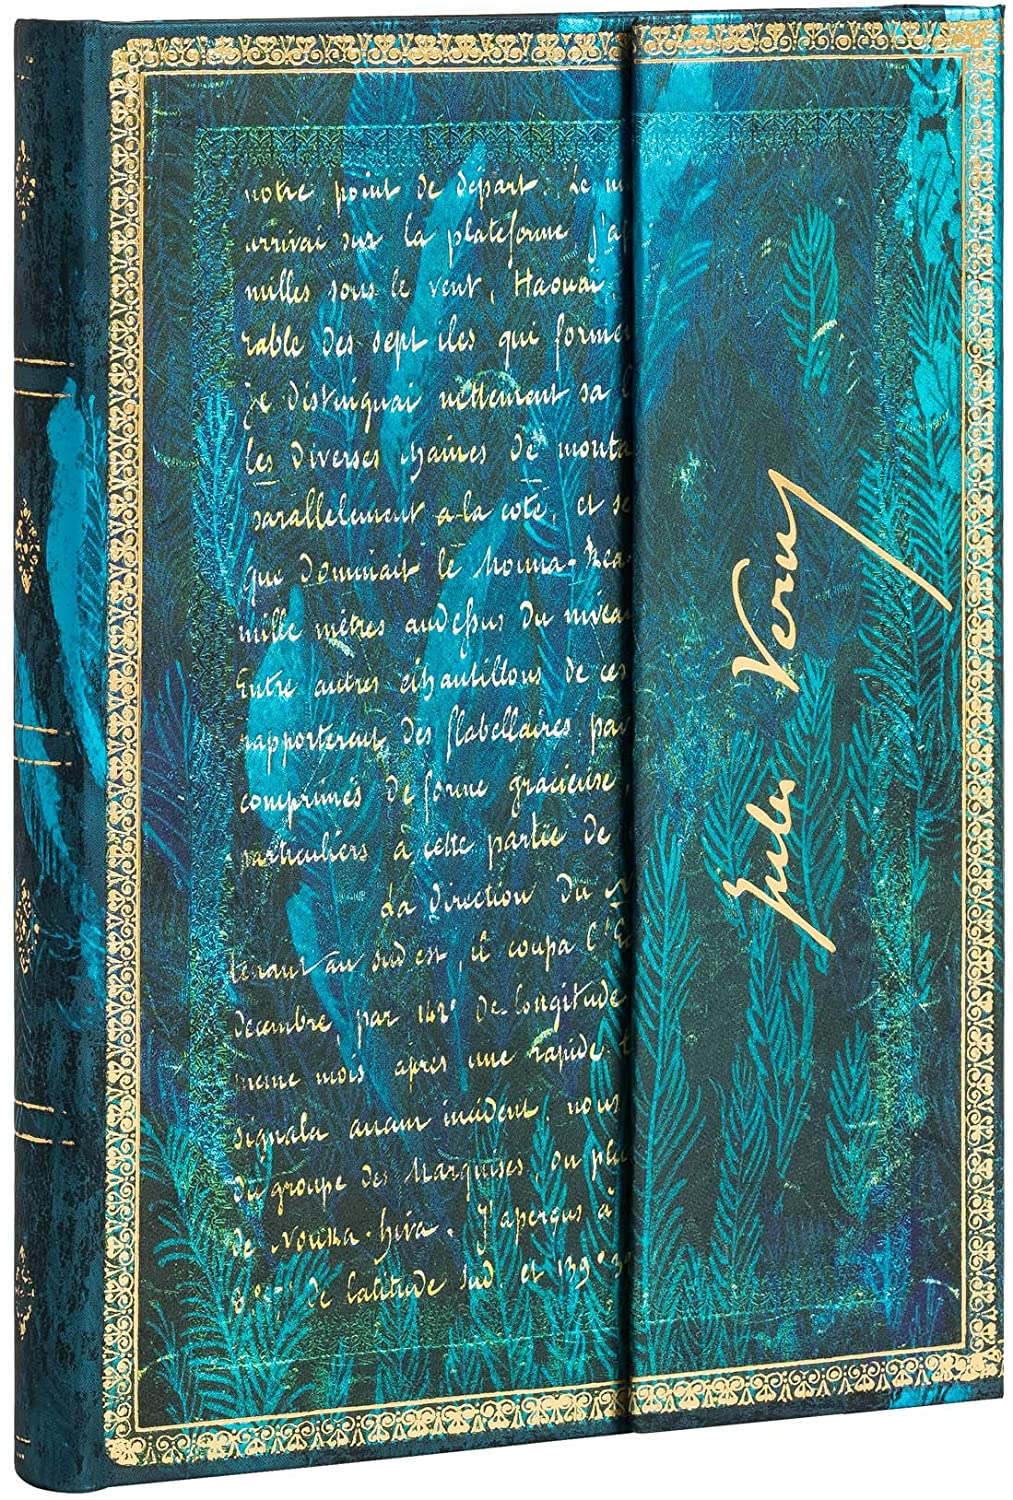 notre point de départ. Le m
arrivai sur la plateforme, j'a
milles sous le vent, Haouai,
rable des sept iles qui formen
je distinguai nettement sa l
les diverses chaines de monta
parallelement a la cote, et se
que dominait le Mouna-Rea
mille mètres audessus du niveau
Entre autres échantillons de ces
rapporterent des flabellaires pa
comprimés de forme gracieuse,
particuliers à cette partie de
La direction du N
tenant au sud est, il coupa l'Eq
décembre, par 142° de longitude
meme mois après une rapide t
signala aucun incident, nous
du groupe des Marquises,
de Nouka-hiva. J'aperçus à
8° de latitude sud, et 139° 3
Jules Verne